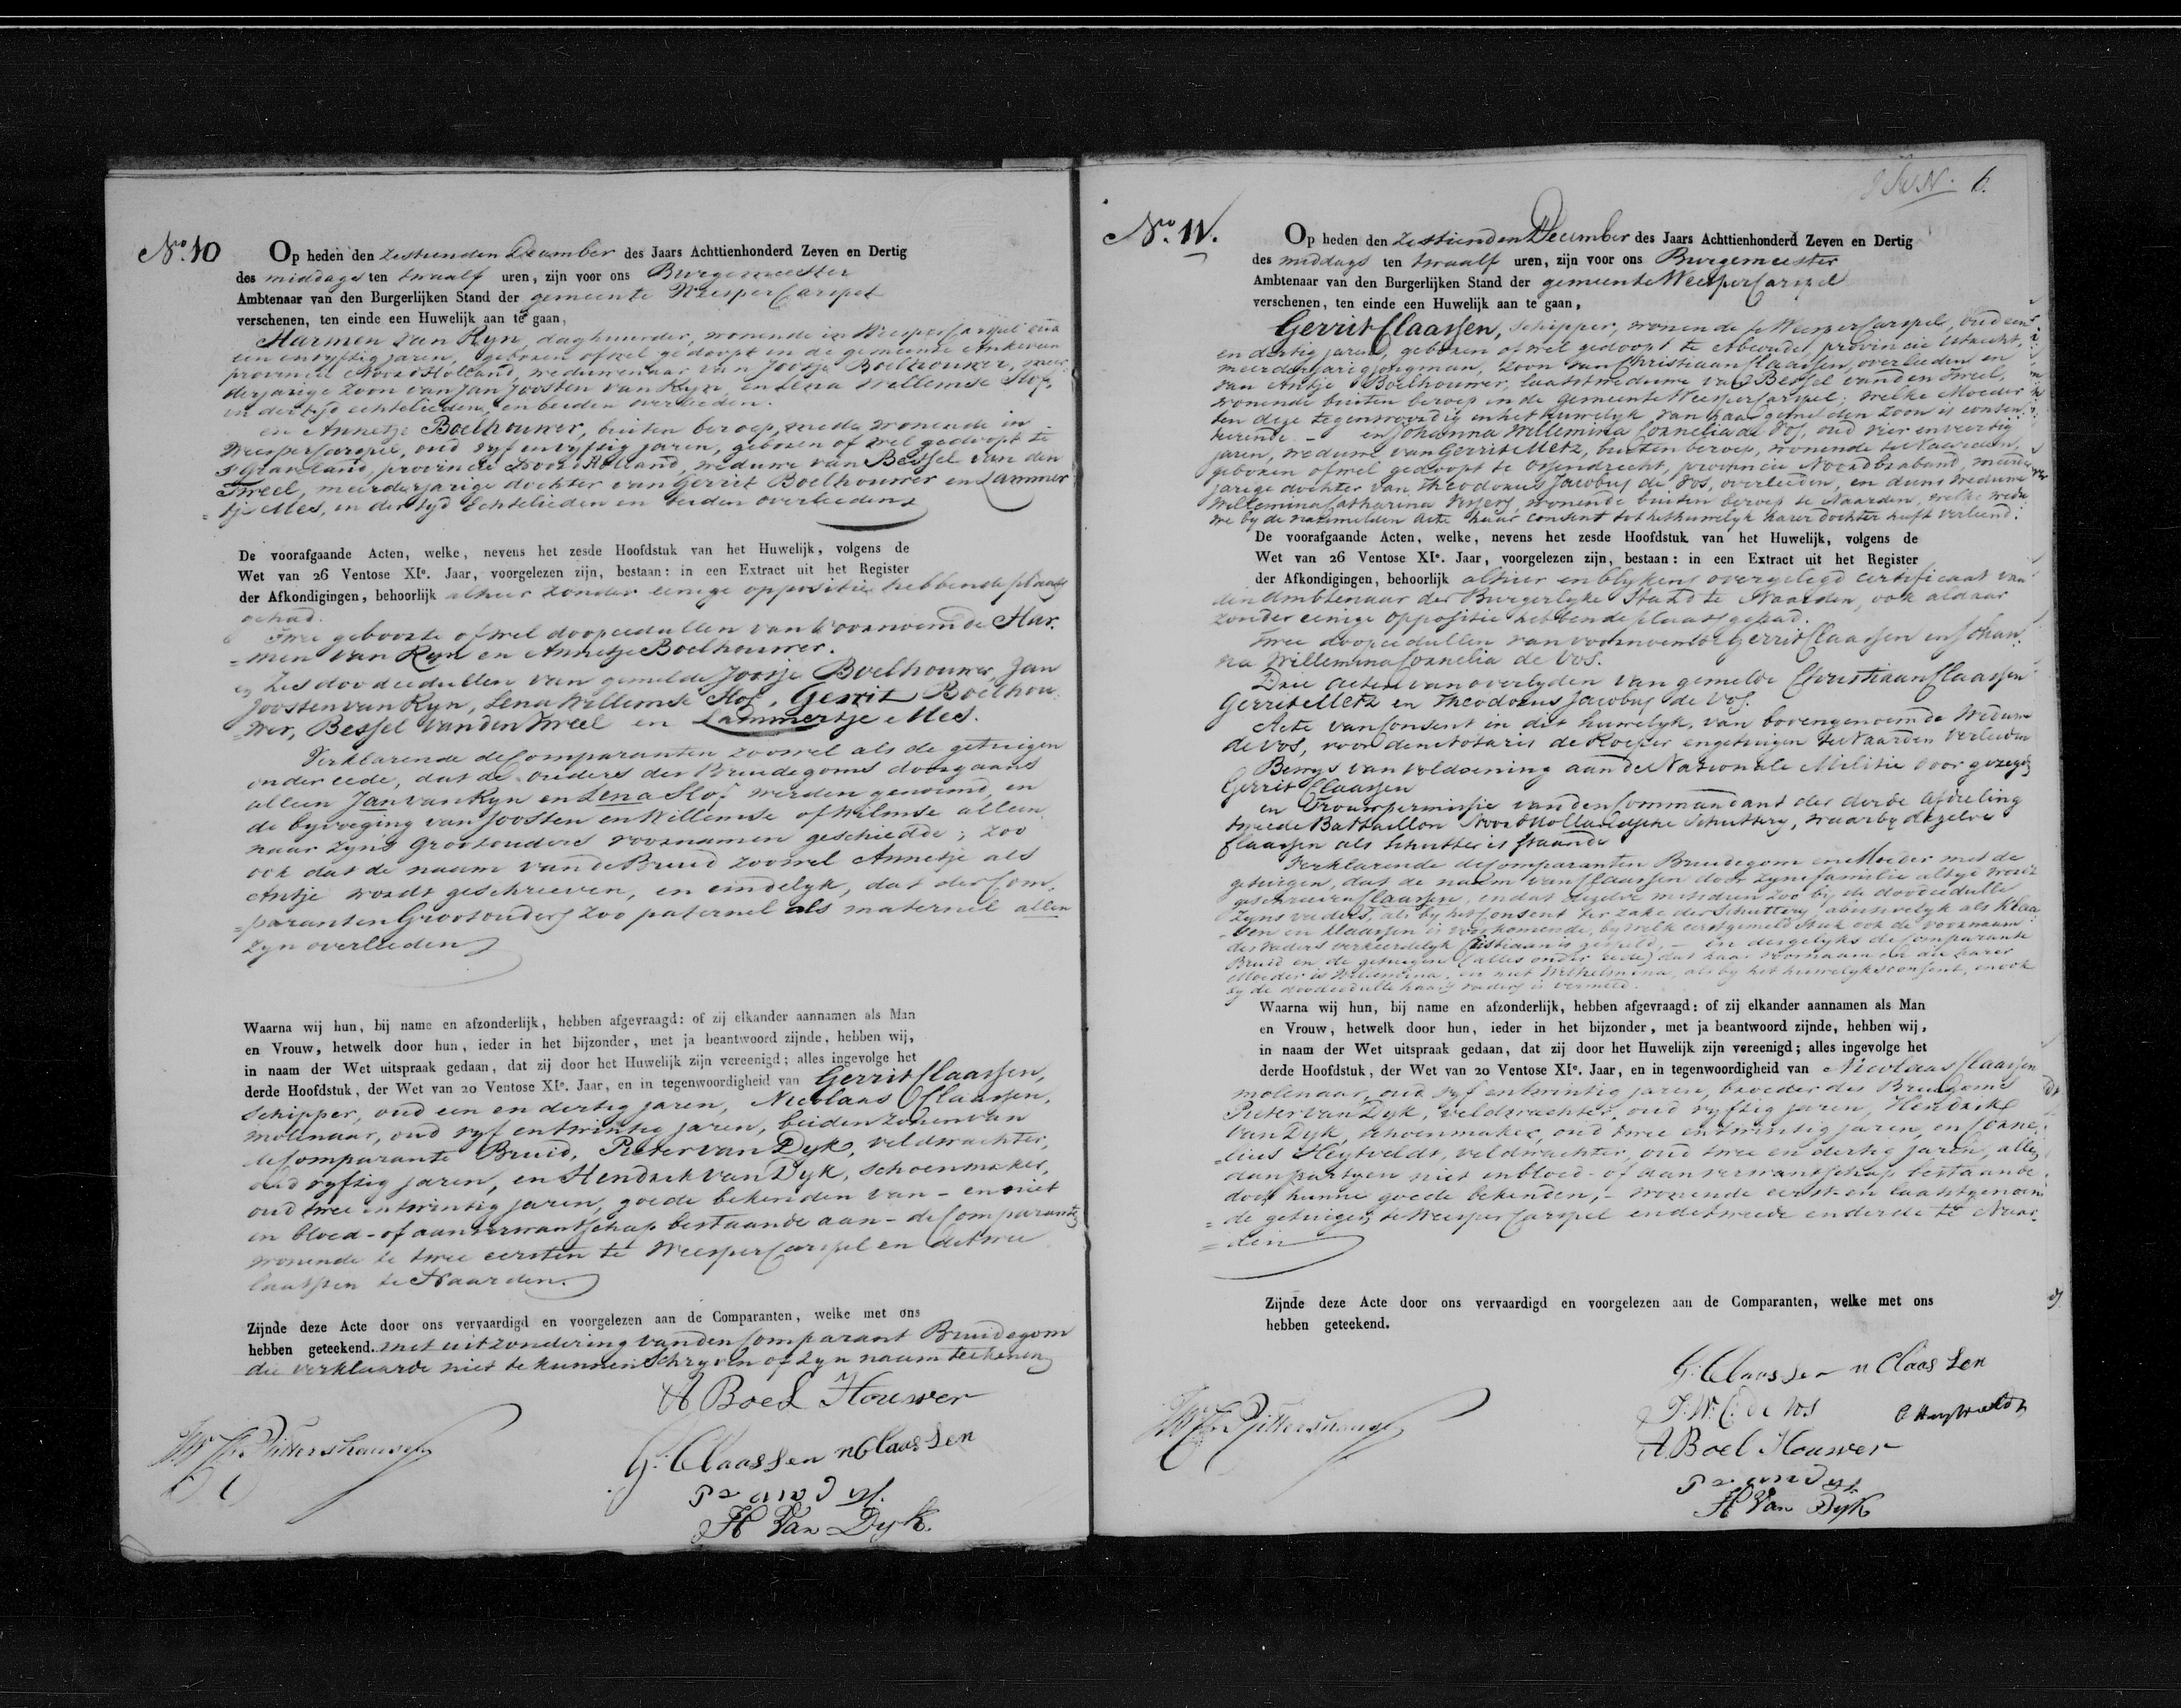 No. 10
Op heden den zestienden December des Jaars Achttienhonderd Zeven en Dertig
des middags ten twaalf uren, zijn voor ons Burgemeester
Ambtenaar van den Burgerlijken Stand der gemeente WeesperCarspel
verschenen, ten einde een Huwelijk aan te gaan,
Harmen van Ryn, daghuurder, wonende in WeesperCarspel oud
een en vyftig jaren, geboren ofwel gedoopt in de gemeente Ankeveen
provincie Noord Holland, weduwenaar van Joosje Boelhouwer, meer
derjarige zoon van Jan Joosten van Ryn, en Lena Willemse Hof,
in der tyd echtelieden, en beiden overleden.
en Annetje Boelhouwer, buiten beroep, mede wonende in
WeesperCarspel, oud vyf en vyftig jaren, geboren of wel gedoopt te
s'Graveland, provincie Noord Holland, weduwe van Bessel van den
Tweel, meerderjarige dochter van Gerrit Boelhouwer en Lammer
tje Mes, in der tyd Echtelieden en beiden overleeden
De voorafgaande Acten, welke, nevens het zesde Hoofdstuk van het Huwelijk, volgens de
Wet van 26 Ventose XIe. Jaar, voorgelezen zijn, bestaan: in een Extract uit het Register
der Afkondigingen, behoorlijk alhier zonder eenige oppositie hebbende plaats
gehad.
Twee geboorte ofwel doopcedullen van voornoemde Har
=men van Ryn en Annetje Boelhouwer.
en Zes doodcedullen van gemelde Joosje Boelhouwer, Jan
Joosten van Ryn, Lena Willemse Hof, Gerrit Boelhou
=wer, Bessel van den Tweel en Lammertje Mes.
Verklarende de Comparanten zoowel als de getuigen
onder eede, dat de ouders des Bruidegoms doorgaans
alleen Jan van Ryn en Lena Hof werden genoemd, en
de byvoeging van Joosten en Willemse of Wilmse alleen
naar zyns Grootouders voornamen geschiedde; zoo
ook dat de naam van de Bruid zoowel Annetje als
Antje wordt geschreeven, en eindelyk, dat der Com
=paranten Grootouders zoo paternel als maternel allen
zyn overleeden
Waarna wij hun, bij name en afzonderlijk, hebben afgevraagd: of zij elkander aannamen als Man
en Vrouw, hetwelk door hun, ieder in het bijzonder, met ja beantwoord zijnde, hebben wij,
in naam der Wet uitspraak gedaan, dat zij door het Huwelijk zijn vereenigd; alles ingevolge het
derde Hoofdstuk, der Wet van 20 Ventose XIe. Jaar, en in tegenwoordigheid van Gerrit Claassen,
schipper, oud een en dertig jaren, Nicolaas Claassen,
molenaar, oud vyf en twintig jaren, beiden zonen van
de Comparante Bruid, Pieter van Dyk, veldwachter,
oud vyftig jaren, en Hendrik van Dyk, schoenmaker,
oud twee en twintig jaren, goede bekenden van - en niet
in bloed- of aanverwantschap bestaande aan - de Comparanten
wonende de twee eersten te WeesperCarspel en de twee
laatsten te Naarden.
Zijnde deze Acte door ons vervaardigd en voorgelezen aan de Comparanten, welke met ons
hebben geteekend. met uitzondering van den Comparant Bruidegom
die verklaarde niet te kunnen schryven of zyn naam teekenen
A Boel Houwer
G. Claassen n Claassen
P van Dyk
H Van Dyk.
6.
No. 11.
Op heden den zestienden December des Jaars Achttienhonderd Zeven en Dertig
des middags ten twaalf uren, zijn voor ons Burgemeester
Ambtenaar van den Burgerlijken Stand der gemeente WeesperCarspel
verschenen, ten einde een Huwelijk aan te gaan,
Gerrit Claassen, schipper, wonende te WeesperCarspel, oud een
en dertig jaren, geboren ofwel gedoopt te Abcoude, provincie Utrecht,
meerderjarig jongman, zoon van Christiaan Claassen, overleeden en
van Antje Boelhouwer, laatst weduwe van Bessel van den Tweel,
wonende buiten beroep in de gemeente WeesperCarspel; welke Moeder
ten deze tegenwoordig in het huwelyk van haar gemelden zoon is consen
teerende. - en Johanna Willemina Cornelia de Vos, oud vier en veertig
jaren, weduwe van Gerrit Metz, buiten beroep, wonende te Naarden,
geboren ofwel gedoopt te Ossendrecht, provincie Noordbraband, meerder
jarige dochter van Theodorus Jacobus de Vos, overleeden, en deszelfs weduwe
Willemina Catharina, wonende buiten beroep te Naarden, welke wedu
we by de natemelden acte haar consent tot het huwelyk harer dochter heeft verleend.
De voorafgaande Acten, welke, nevens het zesde Hoofdstuk van het Huwelijk, volgens de
Wet van 26 Ventose XIe. Jaar, voorgelezen zijn, bestaan: in een Extract uit het Register
der Afkondigingen, behoorlijk alhier en blykens overgelegd certificaat van
den Ambtenaar der Burgerlyke Stand te Naarden, ook aldaar
zonder eenige oppositie hebbende plaats gehad.
Twee doopcedullen van voornoemde Gerrit Claassen en Johan
na Willemina Cornelia de Vos.
Drie acten van overlyden van gemelde Christiaan Claassen
Gerrit Metz en Theodorus Jacobus de Vos.
Acte van Consent in dit huwelyk, van bovengenoemde Weduwe
de Vos, voor den Notaris de Roeper en getuigen te Naarden verleeden
Bewys van voldoening aan de Nationale Militie door gezegde
Gerrit Claassen
en Trouwpermissie van den Commandant der derde afdeeling
tweede Battaillon Noord Hollandsche Schuttery, waarby dezelve
Claassen als Schutter is staande
Verklarende de Comparanten Bruidegom en Moeder met de
getuigen, dat de naam van Claassen door zyne familie altyd wordt
geschreven Claassen, en dat dezelve mitsdien zoo bij de doodcedulle
zyns vaders, als by het Consent ter zake der Schuttery, abusivelyk als Klaa
sen en Klaassen is voorkomende, by welk eerstgemeld stuk ook de voornaam
des vaders verkeerdelyk Cristiaan is gespeld, - en desgelyks de Comparante
Bruid en de getuigen (alles onder eede) dat haar voornaam en die harer
Moeder is Willemina, en niet Wilhelmina, als by het huwelyksconsent, en ook
by de doodcedulle haars vaders is vermeld.
Waarna wij hun, bij name en afzonderlijk, hebben afgevraagd: of zij elkander aannamen als Man
en Vrouw, hetwelk door hun, ieder in het bijzonder, met ja beantwoord zijnde, hebben wij,
in naam der Wet uitspraak gedaan, dat zij door het Huwelijk zijn vereenigd; alles ingevolge het
derde Hoofdstuk, der Wet van 20 Ventose XIe. Jaar, en in tegenwoordigheid van Nicolaas Claassen
molenaar, oud vyf entwintig jaren, broeder des Bruidgoms
Pieter van Dyk, veldwachter, oud vyftig jaren, Hendrik
van Dyk, schoenmaker, oud twee entwintig jaren, en Corne
=lius Heytveldt, veldwachter, oud twee en dertig jaren, allen
aan partyen niet in bloed- of aanverwantschap bestaande
doch hunne goede bekenden, - wonende eerst- en laatstgenoem
=de getuigen te WeesperCarspel en de tweede en derde te Naar
=den
Zijnde deze Acte door ons vervaardigd en voorgelezen aan de Comparanten, welke met ons
hebben geteekend.
G. Claassen n Claassen
J. W. C. de Vos
A. Boel Houwer
P van Dyk
H Van Dyk